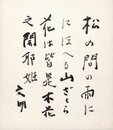 松の間の雨に
にほへる山ざくら
花は皆是木花
之開耶姫
文明